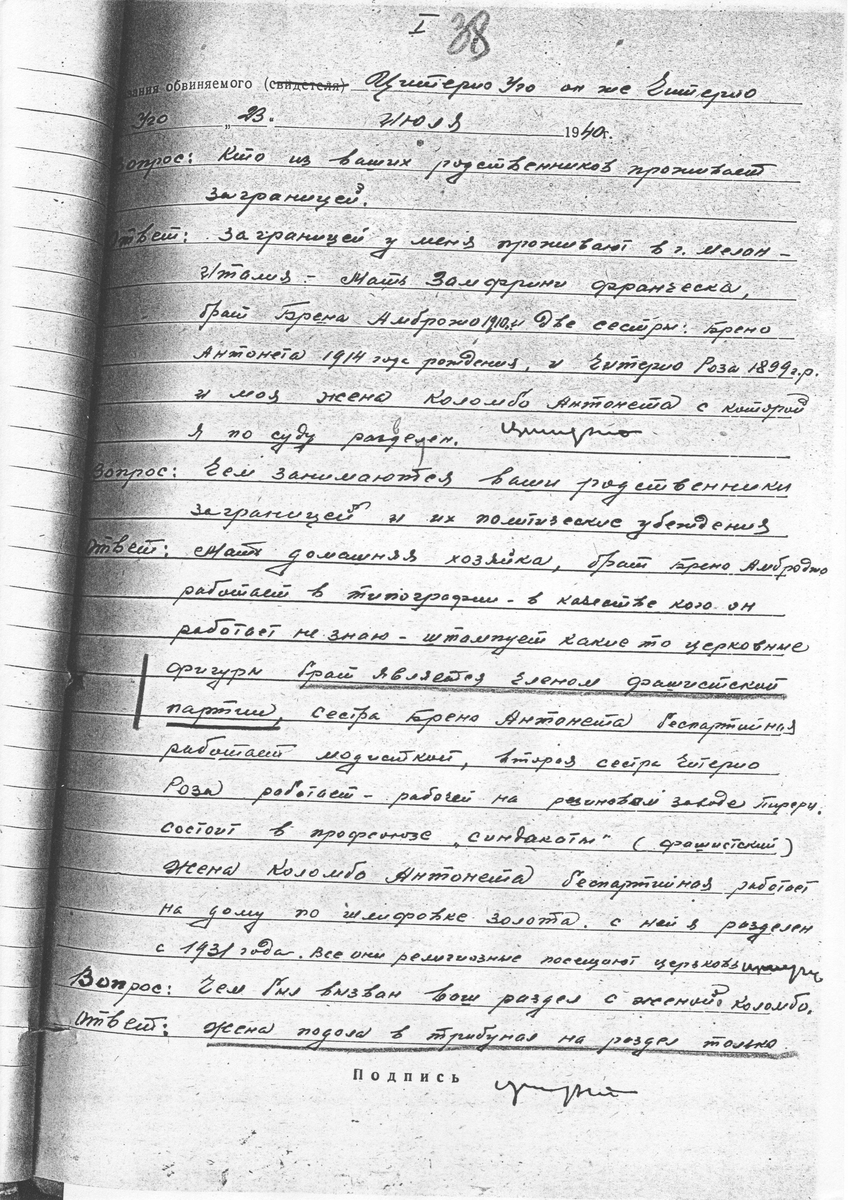 I 38
зания обвиняемого (свидетеля) Цитерио Уго он же Читерио
Уго „23. июля 1940г.
Вопрос: Кто из ваших родственников проживает
заграницей.
Ответ: Заграницей у меня проживают в г. Мелан –
Италия – Мать Замфрини Франческа,
брат Брена Амброжо 1910г. и две сестры: Брено
Антонета 1914 года рождения, и Читерио Роза 1899 г.р.
и моя жена Коломбо Антонета с которой
я по суду разделен. Цитерио
Вопрос: Чем занимаются ваши родственники
заграницей и их политические убеждения
Ответ: Мать домашняя хозяйка, брат Брено Амброджо
работает в типографии – в качестве кого он
работает не знаю – штампует какие то церковные
фигуры брат является членом фашистской
партии, сестра Брено Антонета беспартийная
работает модисткой, вторая сестра Читерио
Роза работает – рабочей на резиновом заводе Пирери.
состоит в профсоюзе „синдакоты" (фашистский)
Жена Коломбо Антонета беспартийная работает
на дому по шлифовке золота. с ней я разделен
с 1931 года. Все они религиозные посещают церьковь Цитерио
Вопрос: Чем был вызван ваш раздел с женой Коломбо.
Ответ: Жена подола в трибунал на раздел только
Подпись Цитерио